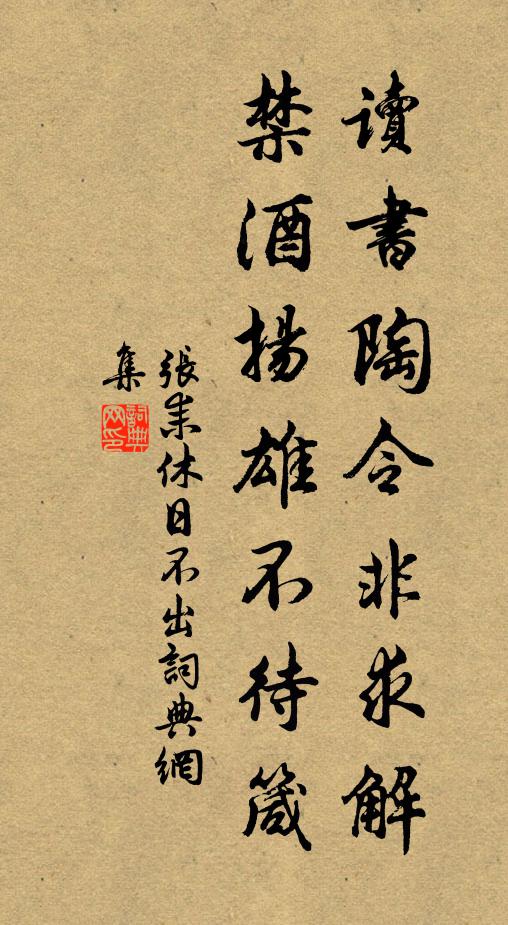 讀書陶令非求解
禁酒揚雄不待箴
張耒休日不出詞典網
集
詞典
网印